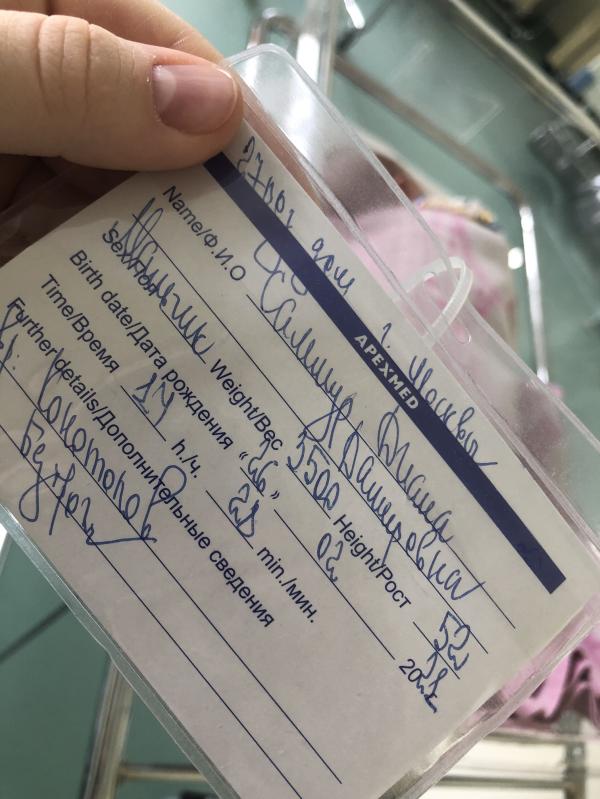 27 род дом г. Москвы
APEXMED
Name/Ф.И.О Диана
Данировна
Sex/Пол Мальчик Weight/Вес 3500 Height/Рост 52
Birth date/Дата рождения "26" 02 20 г.
Time/Время 14 h/ч. 28 min./мин.
Further details/Дополнительные сведения